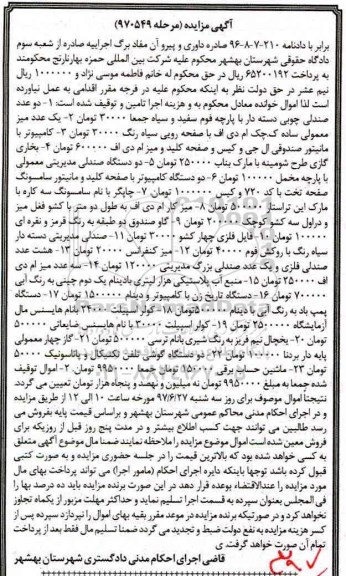 آگهی مزایده (مرحله ۹۷۰۵۴۹)
برابر با دادنامه ۲۱۰-۷-۸-۹۶ صادره داوری و پیرو آن مفاد برگ اجراییه صادره از شعبه سوم
دادگاه حقوقی شهرستان بهشهر محکوم علیه شرکت بین المللی حمزه بهارنارنج محکومند
به پرداخت ۶۵۲۰۰۱۹۲ ریال در حق محکوم له خانم فاطمه موسی نژاد و ۱۰۰۰۰۰۰ ریال
نیم عشر در حق دولت نظر به اینکه محکوم علیه در فرجه مقرر اقدامی به عمل نیاورده
است لذا اموال خوانده معادل محکوم به و هزینه اجرا تامین و توقیف شده است: ۱- دو عدد
صندلی چوبی دسته دار با پارچه فوم سفید و سیاه جمعا ۳۰۰۰۰ تومان ۲- یک عدد میز
معمولی ساده کـچک ام دی اف با صفحه رویی سیاه رنگ ۳۰۰۰۰ تومان ۳- کامپیوتر با
مانیتور صندوقی ال جی و کیس و صفحه کلید و میز ام دی اف ۶۰۰۰۰۰ تومان ۴- بخاری
گازی طرح شومینه با مارک بناب ۲۵۰۰۰۰ تومان ۵- دو دستگاه صندلی مدیریتی معمولی
با پارچه مخمل ۱۰۰۰۰۰ تومان ۶- دو دستگاه کامپیوتر با صفحه کلید و مانیتور سامسونگ
صفحه تخت با کد ۷۲۰ و کیس ۱۰۰۰۰۰۰ تومان ۷- چاپگر با نام سامسونگ سه کاره با
مارک این تراستار ۵۰۰۰۰۰ تومان ۸- میز کار ام دی اف به طول دو متر با کشو قفل میز
و دراول سه کشو کوچک ۲۰۰۰۰۰ تومان ۹- گاو صندوق دو طبقه به رنگ قرمز و نقره ای
۱۰۰۰۰۰ تومان ۱۰- فایل فلزی چهار کشو ۳۰۰۰۰ تومان ۱۱- صندلی مدیریتی دسته دار
سیاه رنگ با روکش فوم ۴۰۰۰۰ تومان ۱۲- میز کنفرانس ۲۰۰۰۰ تومان ۱۳- هشت عدد
صندلی فلزی و یک عدد صندلی بزرگ مدیریتی ۱۲۰۰۰۰ تومان ۱۴- سه عدد میز ام دی
اف ۲۵۰۰۰۰ تومان ۱۵- منبع آب پلاستیکی هزار لیتری بادینام یک دوم چینی به رنگ آبی
۷۰۰۰۰۰ تومان ۱۶- دستگاه تاریخ زن با کامپیوتر و دینام ۱۵۰۰۰۰۰ تومان ۱۷- دستگاه
پمپ باد به رنگ آبی با دینام ۵۰۰۰۰۰ تومان ۱۸- کولر اسپیلت ۲۴۰۰۰ بانام هایسنس مال
آزمایشگاه ۲۵۰۰۰۰ تومان ۱۹- کولر اسپیلت ۳۰۰۰۰ با نام هایسنس ضایعاتی ۵۰۰۰۰۰
تومان ۲۰- یخچال نیم فریزر به رنگ شیری بانام ترسی ۵۰۰۰۰۰ تومان ۲۱- گاز چهار معمولی
پایه دار بردنا ۱۰۰۰۰۰ تومان ۲۲- دو دستگاه گوشی تلفن تکنیکال و پاناسونیک ۵۰۰۰۰
تومان ۲۳- ماشین حساب برقی ۱۵۰۰۰۰ تومان جمعا ۹۹۵۰۰۰۰ تومان ۲- اموال توقیف
شده جمعا به مبلغ ۹۹۵۰۰۰۰ تومان نه میلیون و نهصد و پنجاه هزار تومان تعیین می گردد.
نتیجتا اموال موصوف برای روز سه شنبه ۹۷/۶/۲۷ مورخه ساعت ۱۰ الی ۱۲ از طریق مزایده
و در اجرای احکام مدنی محاکم عمومی شهرستان بهشهر و براساس قیمت پایه بفروش می
رسد طالبین می توانند جهت کسب اطلاع بیشتر و در مدت پنج روز قبل از روزیکه برای
فروش معین شده است اموال موضوع مزایده را ملاحظه نمایند ضمنا مال موضوع آگهی متعلق
به کسی خواهد شد بود که بالاترین قیمت را در جلسه حضوری مزایده و به صورت کتبی
قبول کرده باشد توجها باینکه دایره اجرای احکام (مامور اجرا) می تواند پرداخت بهای مال
مورد مزایده را عندالاقتضاء بوعده قرار دهد در این صورت برنده مزایده باید ده درصد بها را
فی المجلس بعنوان سپرده به قسمت اجرا تسلیم نماید و حداکثر مهلت مزبور از یکماه تجاوز
نخواهد کرد و در صورتیکه برنده مزایده در موعد مقرر بقیه بهای اموال را نپردازد سپرده پس از
کسر هزینه مزایده به نفع دولت ضبط و تجدید می گردد ضمنا تسلیم مال فقط بعد از پرداخت
تمام آن صورت خواهد گرفت. ی
قاضی اجرای احکام مدنی دادگستری شهرستان بهشهر